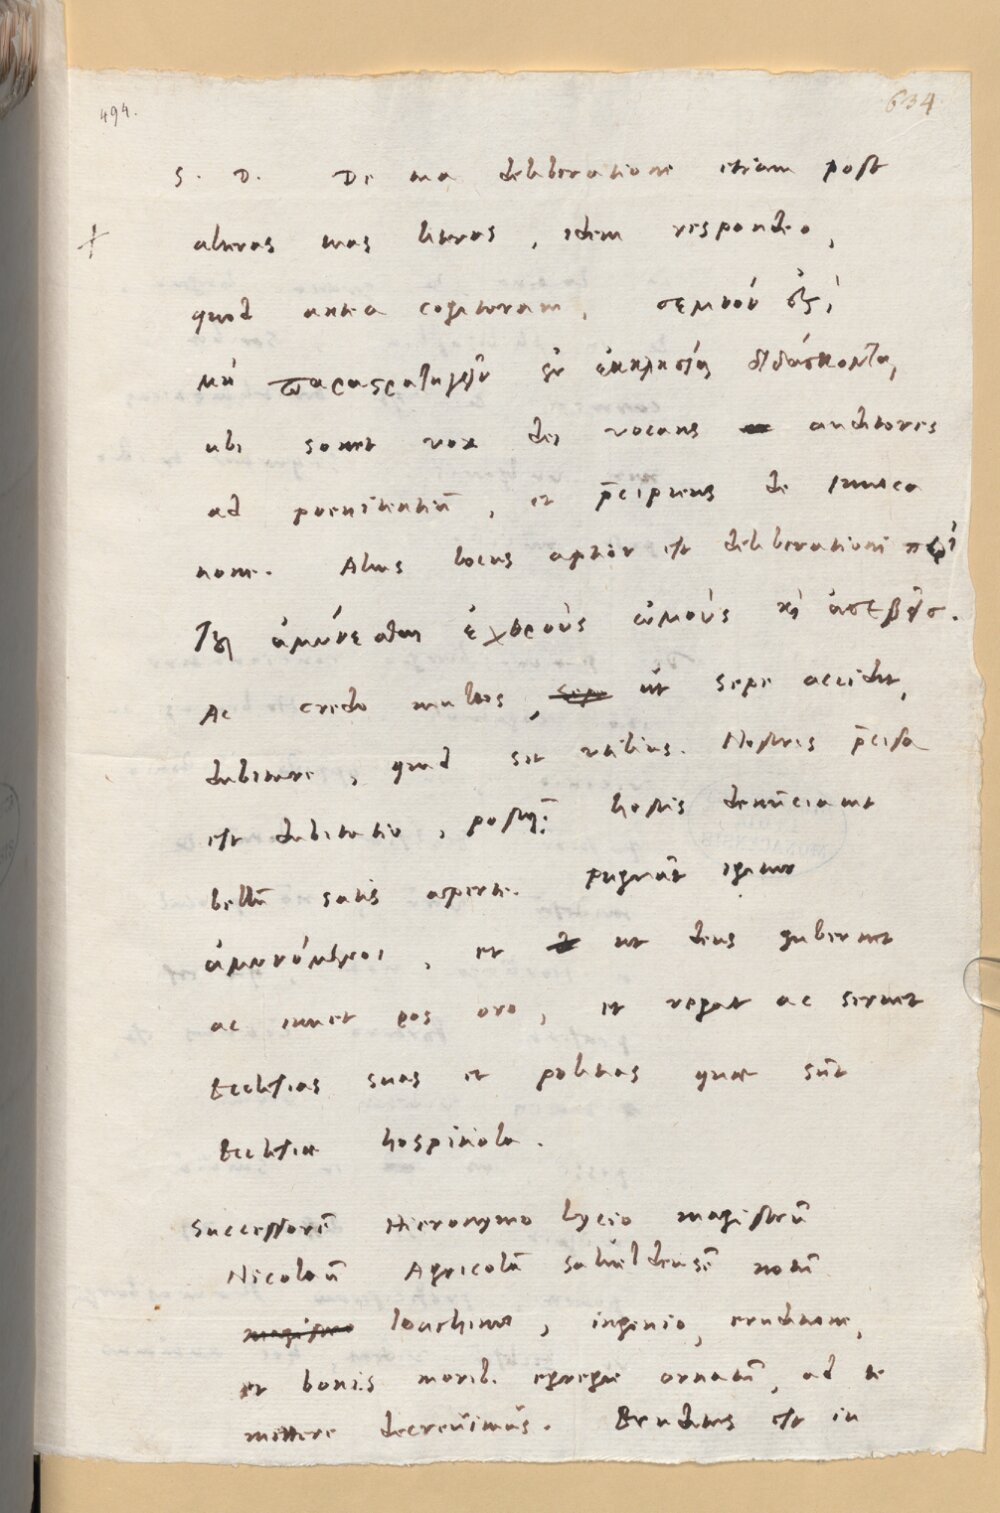 494.
634
S. D. De tua deliberatione etiam post
alteras tuas literas, idem respondeo,
quod antea cogitaram, σεμνοῦ ἐστὶ
μὴ παραστρατηγεῖν ἐν ἐκκλησίᾳ διδάσκοντα,
ubi sonet vox dei vocans auditores
ad poenitentiā, et p̄cipiens de
nome. Alius locus aptior est deliberationi περὶ
τοῦ ἀμύνεσθαι ἐχθροὺς ὠμοὺς καὶ ἀσεβεῖς.
Ac credo multos, sepe ut sepe accidit,
dubitare, quid sit utilius. Nostris p̄cisa
est dubitatio, postq̄ȝ hostis denūciavit
bellū satis asperte. pugnāt igitur
ἀμυνόμενοι, et ut deus gubernet
ac iuvet eos oro, et regat ac servet
Ecclesias suas et politias quae sūt
Ecclesiae hospitiola.
Successorē Hieronymo Lycio magistrū
Nicolaū Agricolā Salueldensē notū
magistro Ioachimo, ingenio, eruditione,
et bonis morib. egregie ornatū, ad te
mittere decrevimus. Eruditus est in